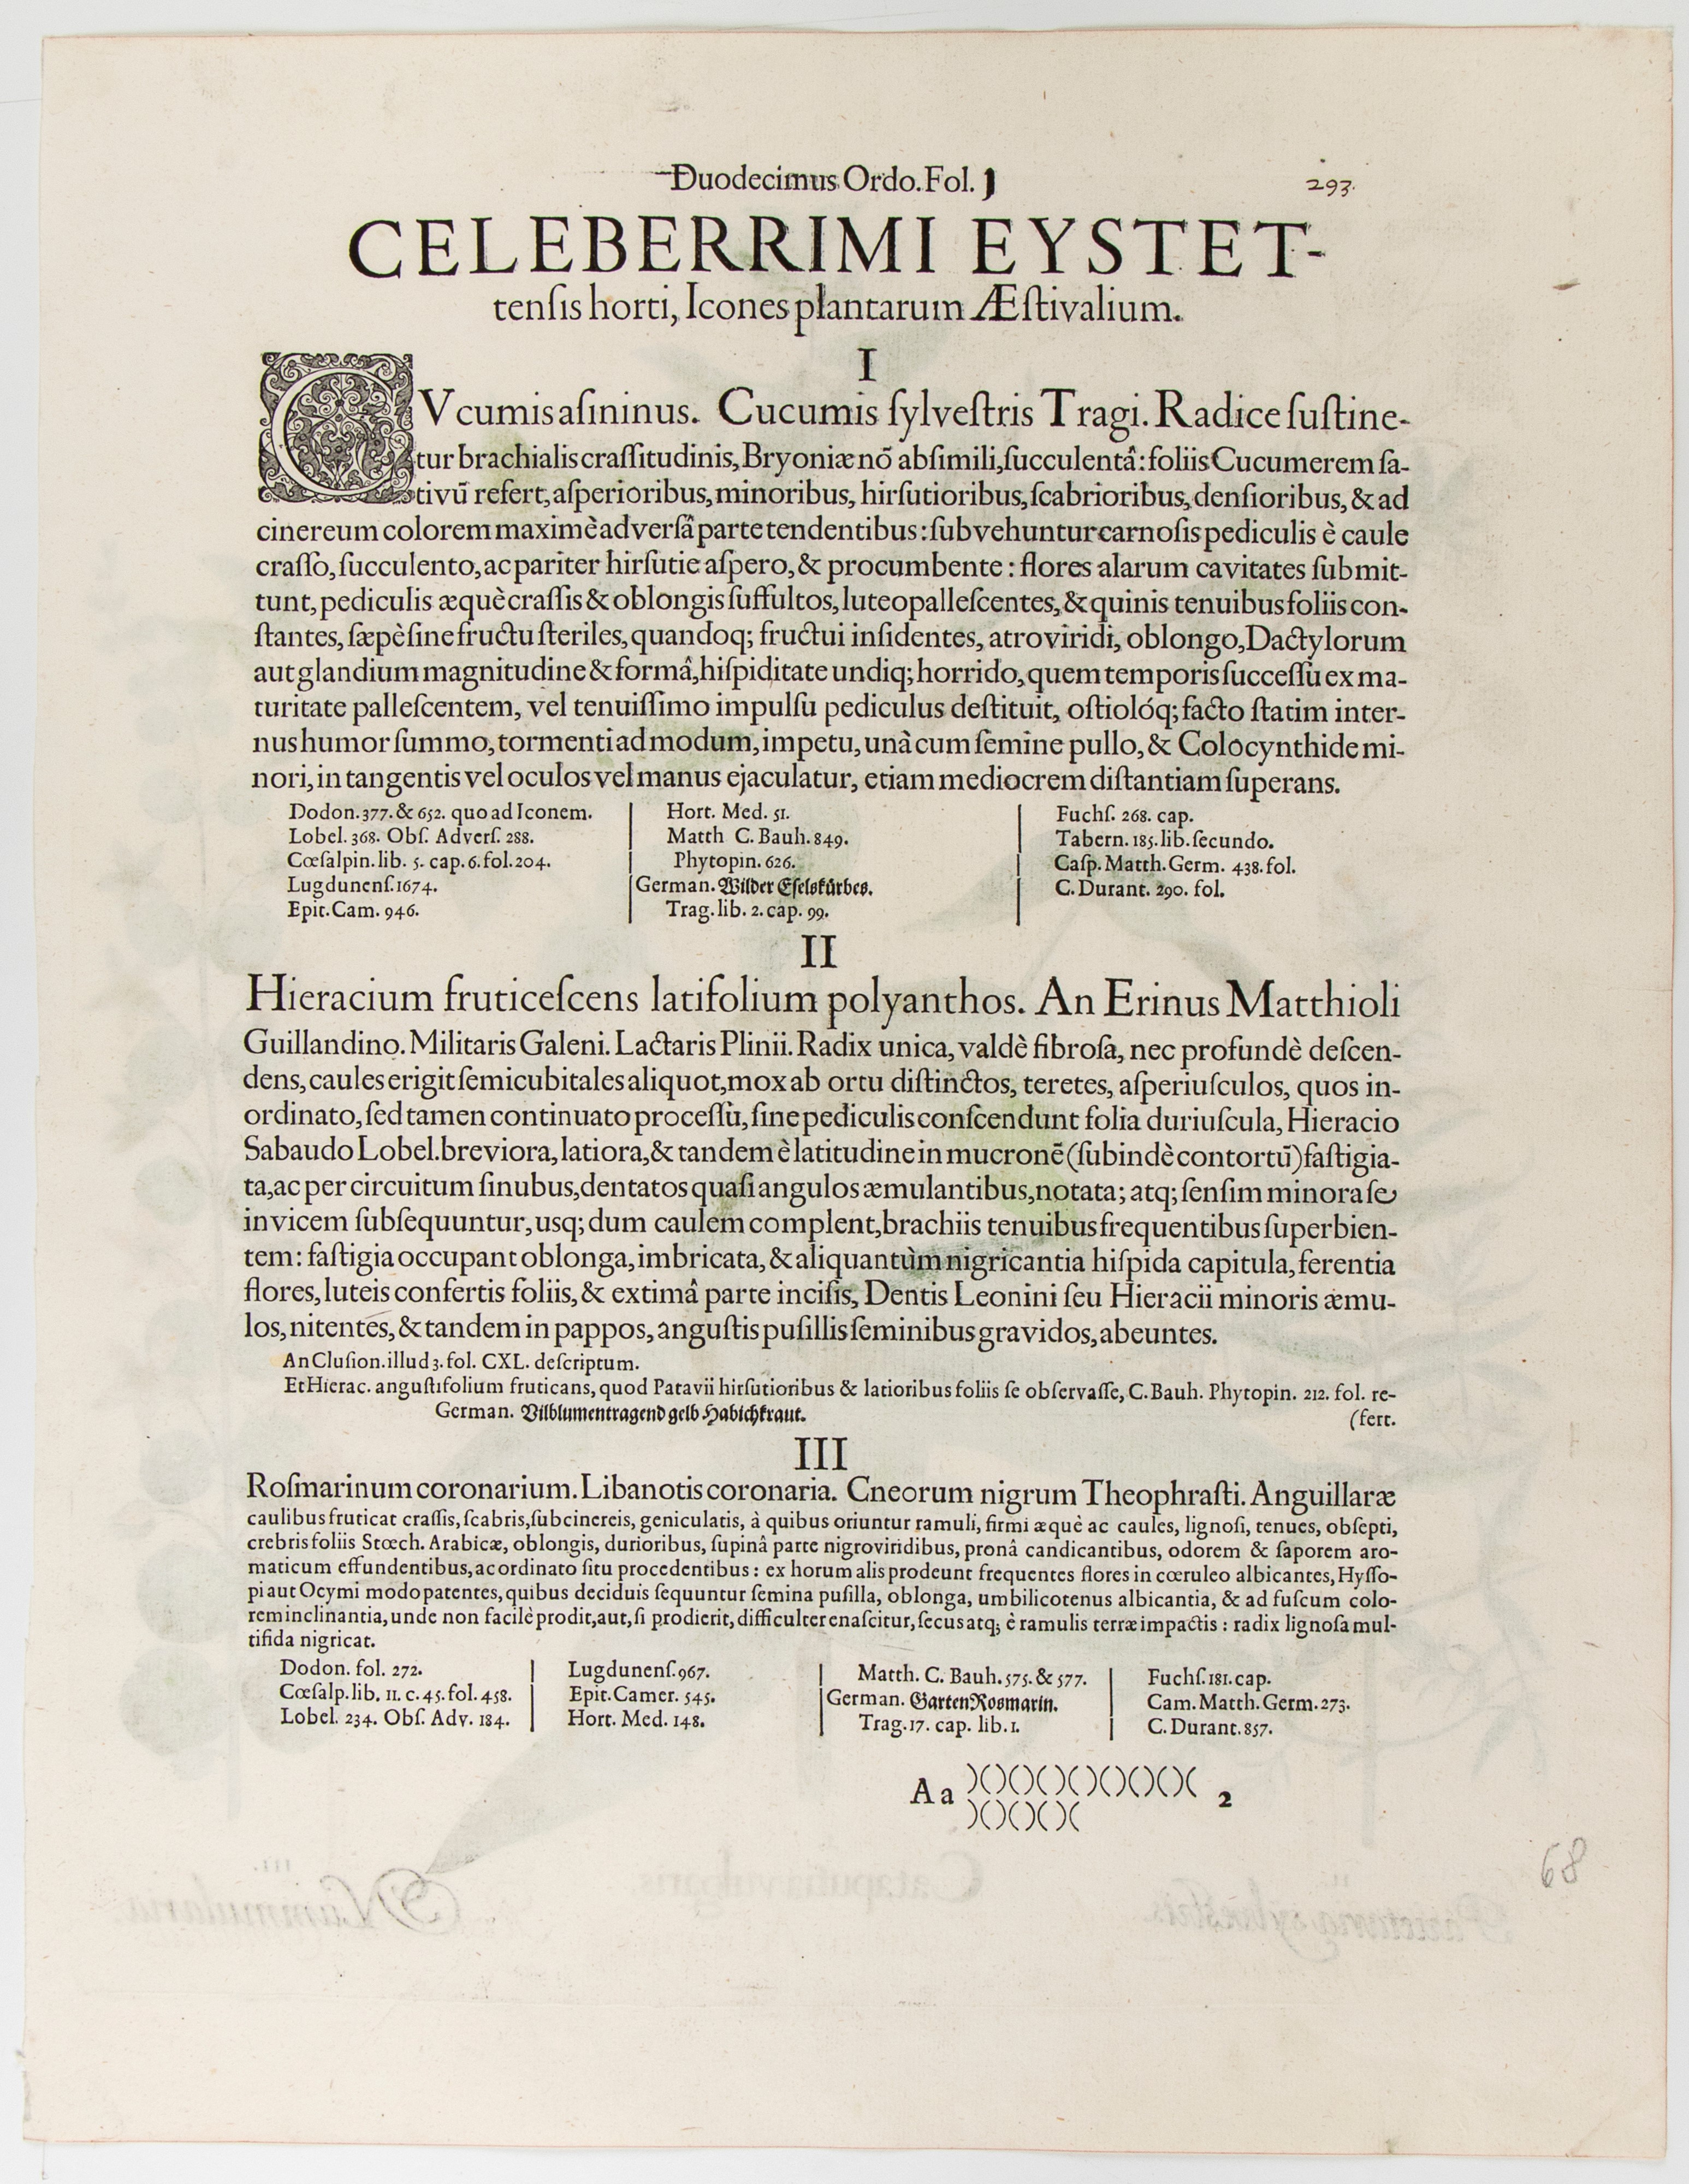 Duodecimus Ordo. Fol. 1
293.
CELEBERRIMI EYSTET-
tenſis horti, Icones plantarum Æſtivalium.
I
CVcumis aſininus. Cucumis ſylveſtris Tragi. Radice ſuſtine-
tur brachialis craſſitudinis, Bryoniæ nõ abſimili, ſucculentâ: foliis Cucumerem ſa-
tivũ refert, aſperioribus, minoribus, hirſutioribus, ſcabrioribus, denſioribus, & ad
cinereum colorem maximè adversâ parte tendentibus: ſubvehuntur carnoſis pediculis è caule
craſſo, ſucculento, ac pariter hirſutie aſpero, & procumbente: flores alarum cavitates ſubmit-
tunt, pediculis æquè craſſis & oblongis ſuffultos, luteo palleſcentes, & quinis tenuibus foliis con-
ſtantes, ſæpè ſine fructu ſteriles, quandoq; fructui inſidentes, atroviridi, oblongo, Dactylorum
aut glandium magnitudine & formâ, hiſpiditate undiq; horrido, quem temporis ſucceſſu ex ma-
turitate palleſcentem, vel tenuiſſimo impulſu pediculus deſtituit, oſtiolóq; facto ſtatim inter-
nus humor ſummo, tormenti ad modum, impetu, unà cum ſemine pullo, & Colocynthide mi-
nori, in tangentis vel oculos vel manus ejaculatur, etiam mediocrem diſtantiam ſuperans.
Dodon. 377. & 652. quo ad Iconem.
Lobel. 368. Obſ. Adverſ. 288.
Cœſalpin. lib. 5. cap. 6. fol. 204.
Lugdunenſ. 1674.
Epit. Cam. 946.
Hort. Med. 51.
Matth C. Bauh. 849.
Phytopin. 626.
German. Wilder Eſelskürbes.
Trag. lib. 2. cap. 99.
Fuchſ. 268. cap.
Tabern. 185. lib. ſecundo.
Caſp. Matth. Germ. 438. fol.
C. Durant. 290. fol.
II
Hieracium fruticeſcens latifolium polyanthos. An Erinus Matthioli
Guillandino. Militaris Galeni. Lactaris Plinii. Radix unica, valdè fibroſa, nec profundè deſcen-
dens, caules erigit ſemicubitales aliquot, mox ab ortu diſtinctos, teretes, aſperiuſculos, quos in-
ordinato, ſed tamen continuato proceſſu, ſine pediculis conſcendunt folia duriuſcula, Hieracio
Sabaudo Lobel. breviora, latiora, & tandem è latitudine in mucronẽ (ſubindè contortũ) faſtigia-
ta, ac per circuitum ſinubus, dentatos quaſi angulos æmulantibus, notata; atq; ſenſim minora ſe
invicem ſubſequuntur, usq; dum caulem complent, brachiis tenuibus frequentibus ſuperbien-
tem: faſtigia occupant oblonga, imbricata, & aliquantùm nigricantia hiſpida capitula, ferentia
flores, luteis confertis foliis, & extimâ parte inciſis, Dentis Leonini ſeu Hieracii minoris æmu-
los, nitentes, & tandem in pappos, anguſtis puſillis ſeminibus gravidos, abeuntes.
An Cluſion. illud 3. fol. CXL. deſcriptum.
Et Hierac. anguſtifolium fruticans, quod Patavii hirſutioribus & latioribus foliis ſe obſervaſſe, C. Bauh. Phytopin. 212. fol. re-
German. Vilblumentragend gelb Habichkraut. (fert.
III
Roſmarinum coronarium. Libanotis coronaria. Cneorum nigrum Theophraſti. Anguillaræ
caulibus fruticat craſſis, ſcabris, ſubcinereis, geniculatis, à quibus oriuntur ramuli, firmi æquè ac caules, lignoſi, tenues, obſepti,
crebris foliis Stœch. Arabicæ, oblongis, durioribus, ſupinâ parte nigroviridibus, pronâ candicantibus, odorem & ſaporem aro-
maticum effundentibus, ac ordinato ſitu procedentibus: ex horum alis prodeunt frequentes flores in cœruleo albicantes, Hyſſo-
pi aut Ocymi modo patentes, quibus deciduis ſequuntur ſemina puſilla, oblonga, umbilicotenus albicantia, & ad fuſcum colo-
rem inclinantia, unde non facilè prodit, aut, ſi prodierit, difficulter enaſcitur, ſecus atq; è ramulis terræ impactis: radix lignoſa mul-
tifida nigricat.
Dodon. fol. 272.
Cœſalp. lib. 11. c. 45. fol. 458.
Lobel. 234. Obſ. Adv. 184.
Lugdunenſ. 967.
Epit. Camer. 545.
Hort. Med. 148.
Matth. C. Bauh. 575. & 577.
German. Garten Rosmarin.
Trag. 17. cap. lib. 1.
Fuchſ. 181. cap.
Cam. Matth. Germ. 273.
C. Durant. 857.
Aa )()()()()()()()( 2
)()()()(
68